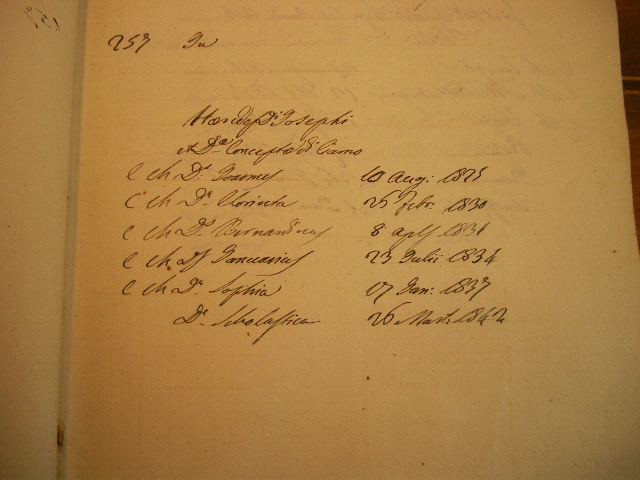 257 In
Haeredes Dni Josephi
et Dae Conceptae di Jarno
C Ch Ds Joannes 10 Aug: 1828
C Ch Da Florinta 25 Febr: 1830
C Ch Ds Bernardinus 8 apls 1831
C Ch Ds Januarius 23 Julii 1834
C Ch Da Sophia 17 Jan: 1837
Da Scholastica 26 Marts 1842